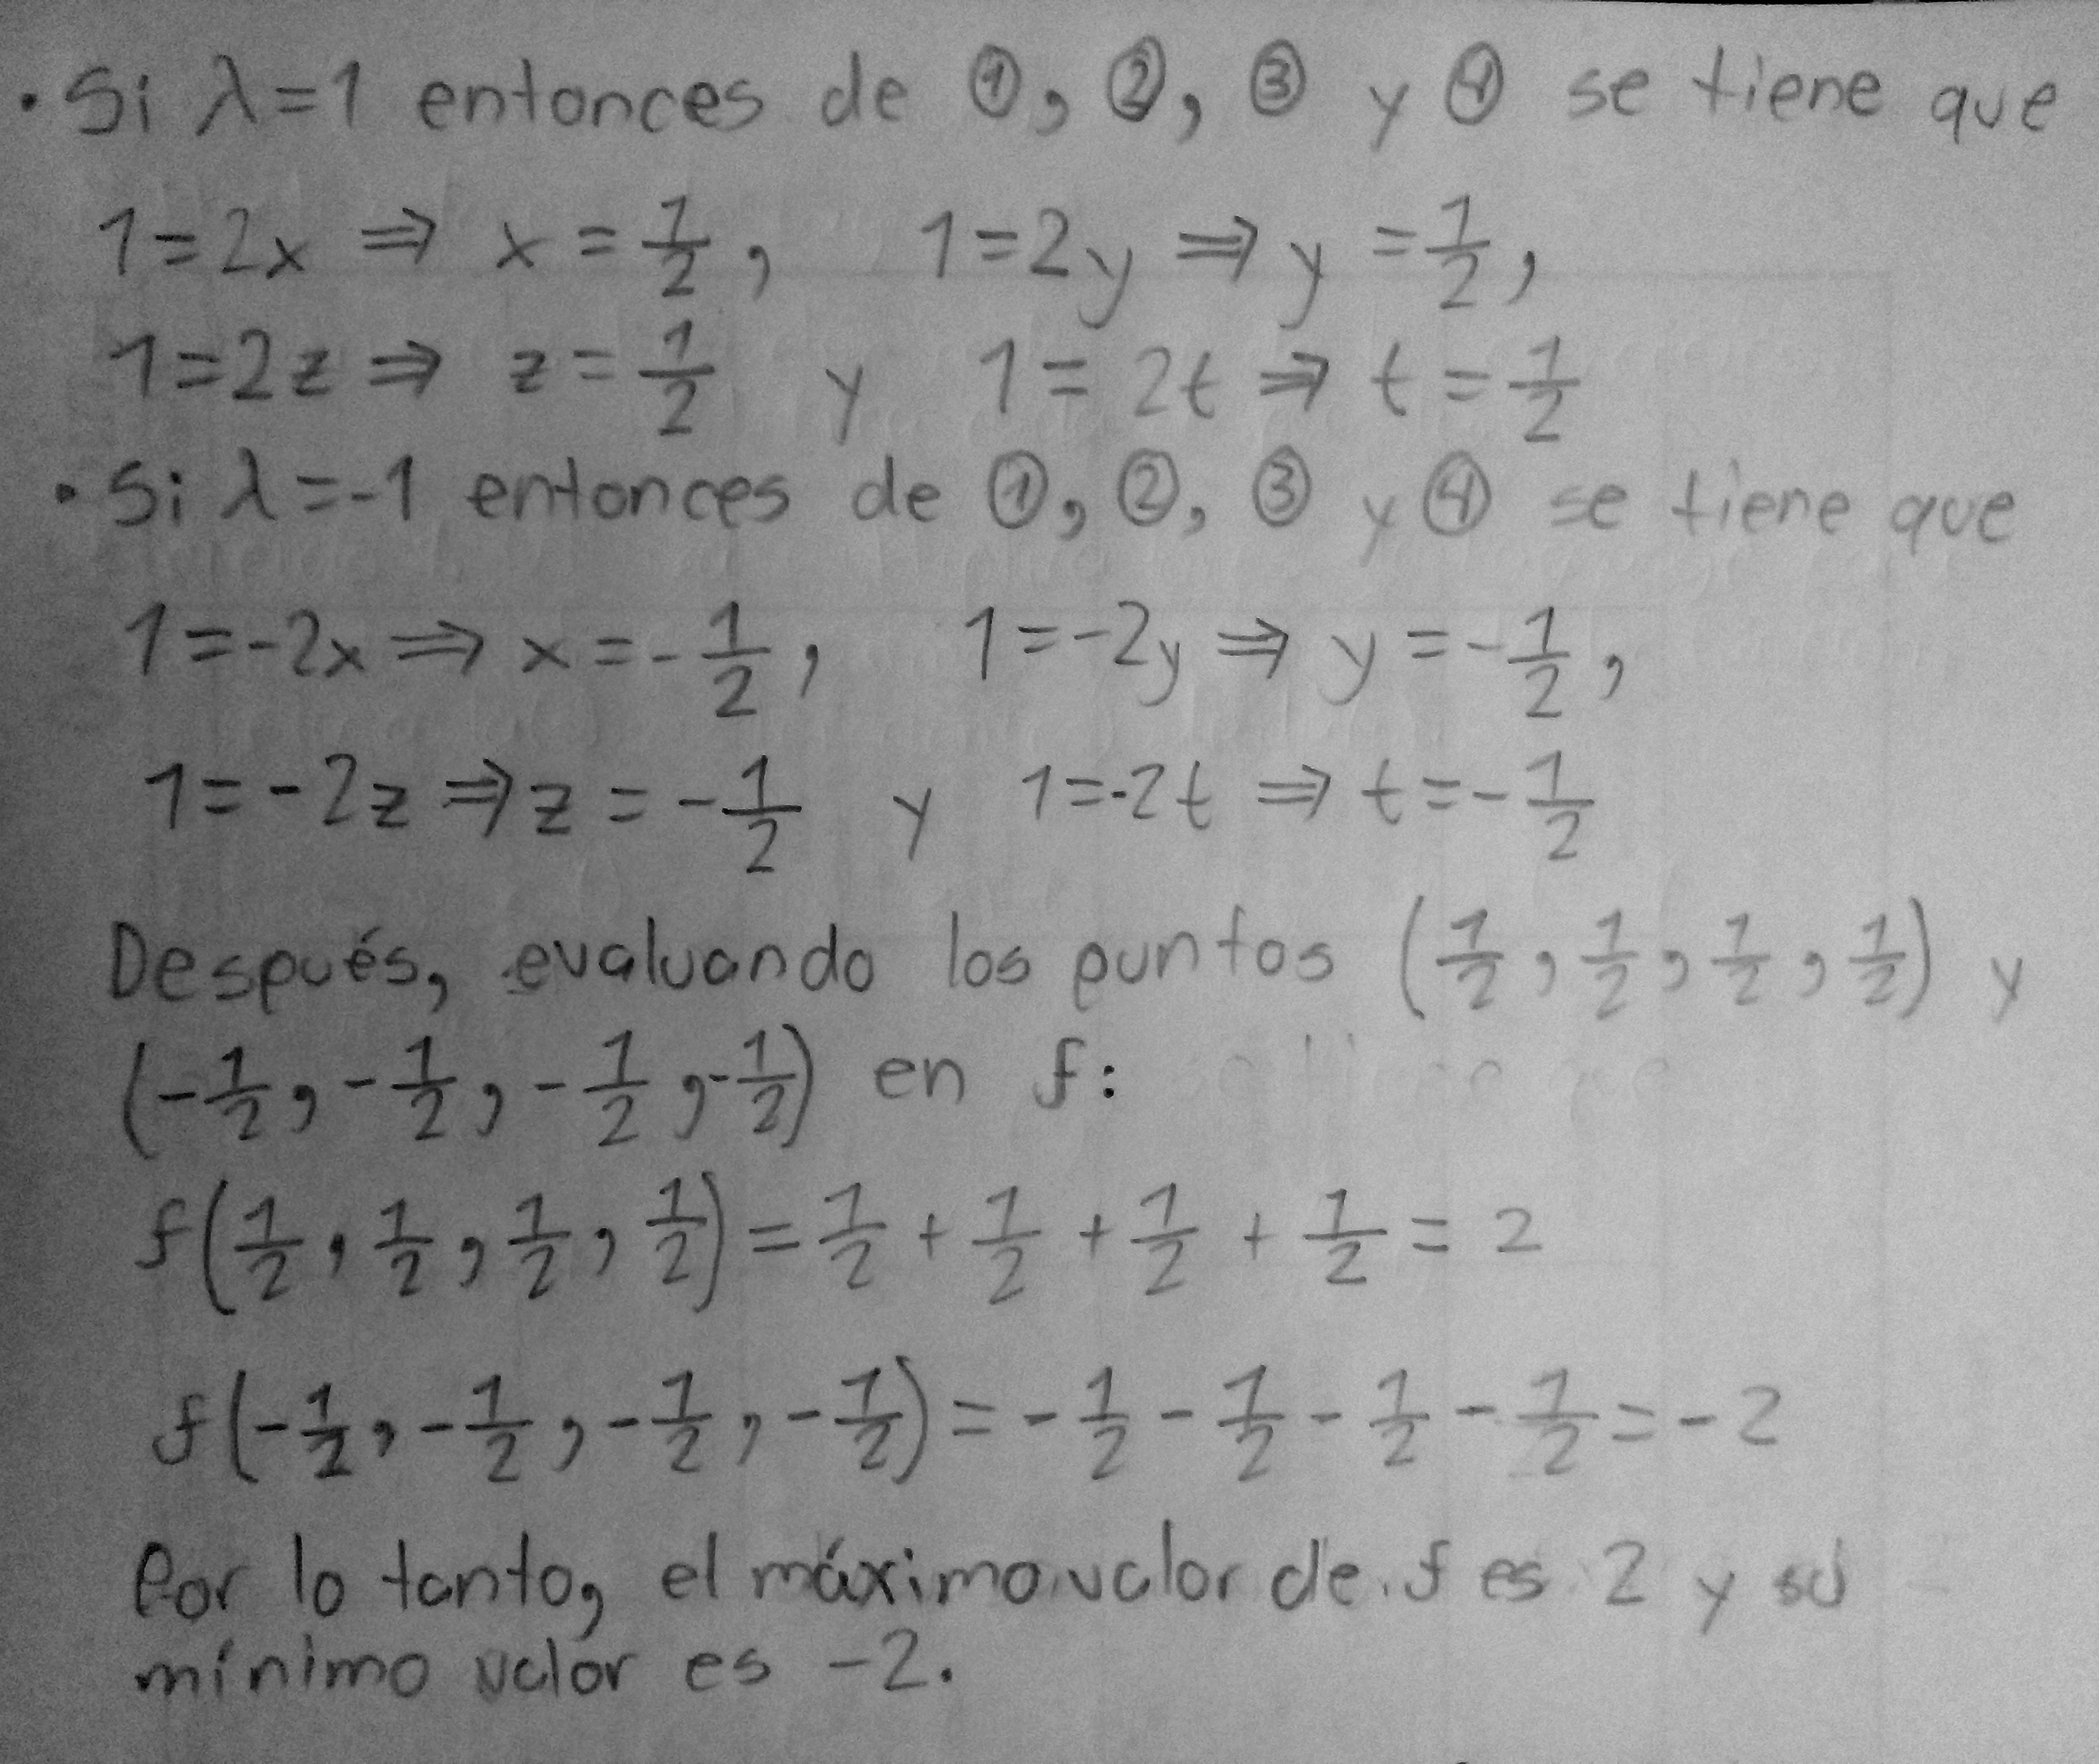 • Si λ=1 entonces de ①, ②, ③ y ④ se tiene que
1=2x ⇒ x = 1/2, 1=2y ⇒ y = 1/2,
1=2z ⇒ z = 1/2 y 1=2t ⇒ t = 1/2
• Si λ=-1 entonces de ①, ②, ③ y ④ se tiene que
1=-2x ⇒ x = -1/2, 1=-2y ⇒ y = -1/2,
1=-2z ⇒ z = -1/2 y 1=-2t ⇒ t = -1/2
Después, evaluando los puntos (1/2, 1/2, 1/2, 1/2) y
(-1/2, -1/2, -1/2, -1/2) en f:
f(1/2, 1/2, 1/2, 1/2) = 1/2 + 1/2 + 1/2 + 1/2 = 2
f(-1/2, -1/2, -1/2, -1/2) = -1/2 - 1/2 - 1/2 - 1/2 = -2
Por lo tanto, el máximo valor de f es 2 y su
mínimo valor es -2.